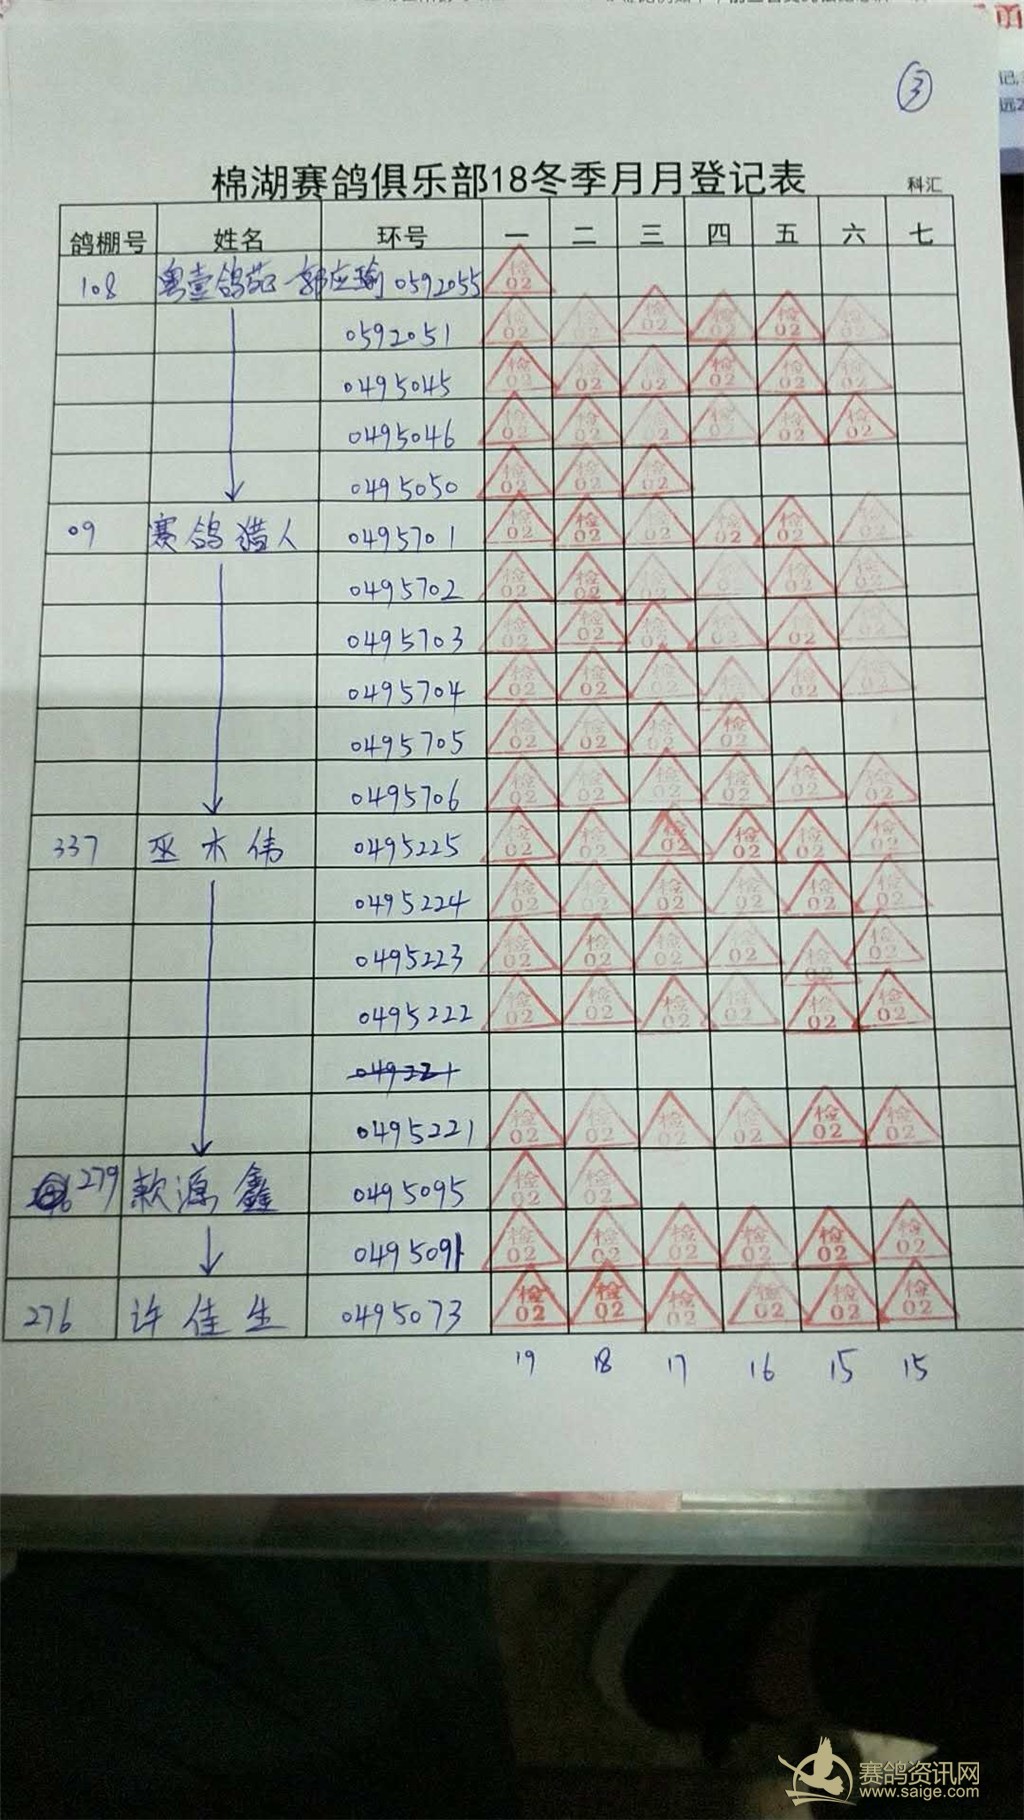 ③
棉湖赛鸽俱乐部18冬季月月登记表 科汇
鸽棚号 姓名 环号 一 二 三 四 五 六 七
108 粤壹鸽苑 郭应瑜 0592055 检02
0592051 检02 检02 检02 检02 检02 检02
0495045 检02 检02 检02 检02 检02 检02
0495046 检02 检02 检02 检02 检02 检02
0495050 检02 检02 检02
09 赛鸽猎人 0495701 检02 检02 检02 检02 检02 检02
0495702 检02 检02 检02 检02 检02 检02
0495703 检02 检02 检02 检02 检02 检02
0495704 检02 检02 检02 检02 检02 检02
0495705 检02 检02 检02 检02
0495706 检02 检02 检02 检02 检02 检02
337 巫木伟 0495225 检02 检02 检02 检02 检02 检02
0495224 检02 检02 检02 检02 检02 检02
0495223 检02 检02 检02 检02 检02 检02
0495222 检02 检02 检02 检02 检02 检02
0495221 检02 检02 检02 检02 检02 检02
279 源鑫 0495095 检02 检02
0495091 检02 检02 检02 检02 检02 检02
276 许佳生 0495073 检02 检02 检02 检02 检02 检02
19 18 17 16 15 15
赛鸽资讯网
www.saige.com